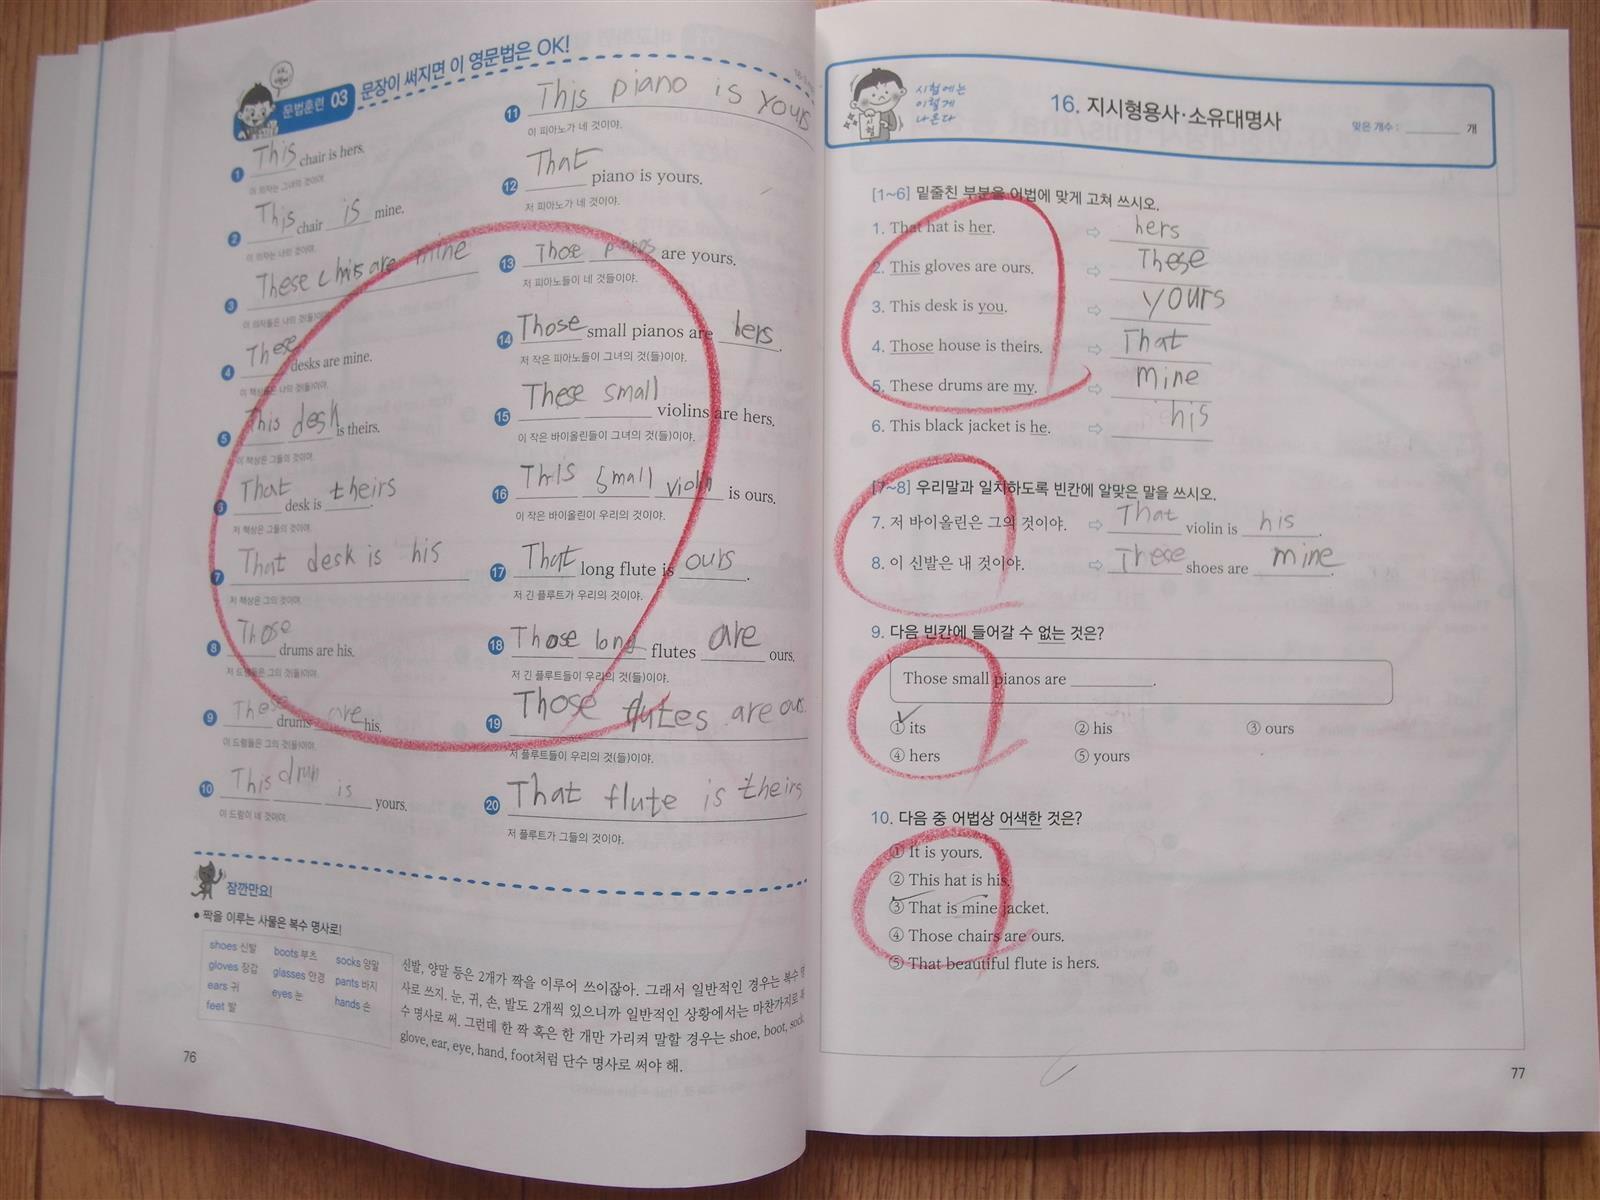 문법훈련 03 문장이 써지면 이 영문법은 OK!
1 This chair is hers.
이 의자는 그녀의 것이야.
2 This chair is mine.
이 의자는 나의 것이야.
3 These chirs are mine
이 의자들은 나의 것(들)이야.
4 These desks are mine.
이 책상들은 나의 것(들)이야.
5 This desk is theirs.
이 책상은 그들의 것이야.
6 That desk is theirs.
저 책상은 그들의 것이야.
7 That desk is his
저 책상은 그의 것이야.
8 Those drums are his.
저 드럼들은 그의 것(들)이야.
9 These drums are his.
이 드럼들은 그의 것(들)이야.
10 This drum is yours.
이 드럼이 네 것이야.
11 This piano is yours
이 피아노가 네 것이야.
12 That piano is yours.
저 피아노가 네 것이야.
13 Those pianos are yours.
저 피아노들이 네 것들이야.
14 Those small pianos are hers.
저 작은 피아노들이 그녀의 것(들)이야.
15 These small violins are hers.
이 작은 바이올린들이 그녀의 것(들)이야.
16 This small violin is ours.
이 작은 바이올린이 우리의 것이야.
17 That long flute is ours.
저 긴 플루트가 우리의 것이야.
18 Those long flutes are ours.
저 긴 플루트들이 우리의 것(들)이야.
19 Those flutes are ours
저 플루트들이 우리의 것(들)이야.
20 That flute is theirs
저 플루트가 그들의 것이야.
잠깐만요!
• 짝을 이루는 사물은 복수 명사로!
shoes 신발 boots 부츠 socks 양말
gloves 장갑 glasses 안경 pants 바지
ears 귀 eyes 눈 hands 손
feet 발
신발, 양말 등은 2개가 짝을 이루어 쓰이잖아. 그래서 일반적인 경우는 복수 명
사로 쓰지. 눈, 귀, 손, 발도 2개씩 있으니까 일반적인 상황에서는 마찬가지로 복
수 명사로 써. 그런데 한 짝 혹은 한 개만 가리켜 말할 경우는 shoe, boot, sock,
glove, ear, eye, hand, foot처럼 단수 명사로 써야 해.
76
시험에는
이렇게
나온다
시험
16. 지시형용사·소유대명사
맞은 개수 : 개
[1~6] 밑줄친 부분을 어법에 맞게 고쳐 쓰시오.
1. That hat is her. ⇨ hers
2. This gloves are ours. ⇨ These
3. This desk is you. ⇨ yours
4. Those house is theirs. ⇨ That
5. These drums are my. ⇨ mine
6. This black jacket is he. ⇨ his
[7~8] 우리말과 일치하도록 빈칸에 알맞은 말을 쓰시오.
7. 저 바이올린은 그의 것이야. ⇨ That violin is his.
8. 이 신발은 내 것이야. ⇨ These shoes are mine.
9. 다음 빈칸에 들어갈 수 없는 것은?
Those small pianos are ________.
① its ② his ③ ours
④ hers ⑤ yours
10. 다음 중 어법상 어색한 것은?
① It is yours.
② This hat is his.
③ That is mine jacket.
④ Those chairs are ours.
⑤ That beautiful flute is hers.
77